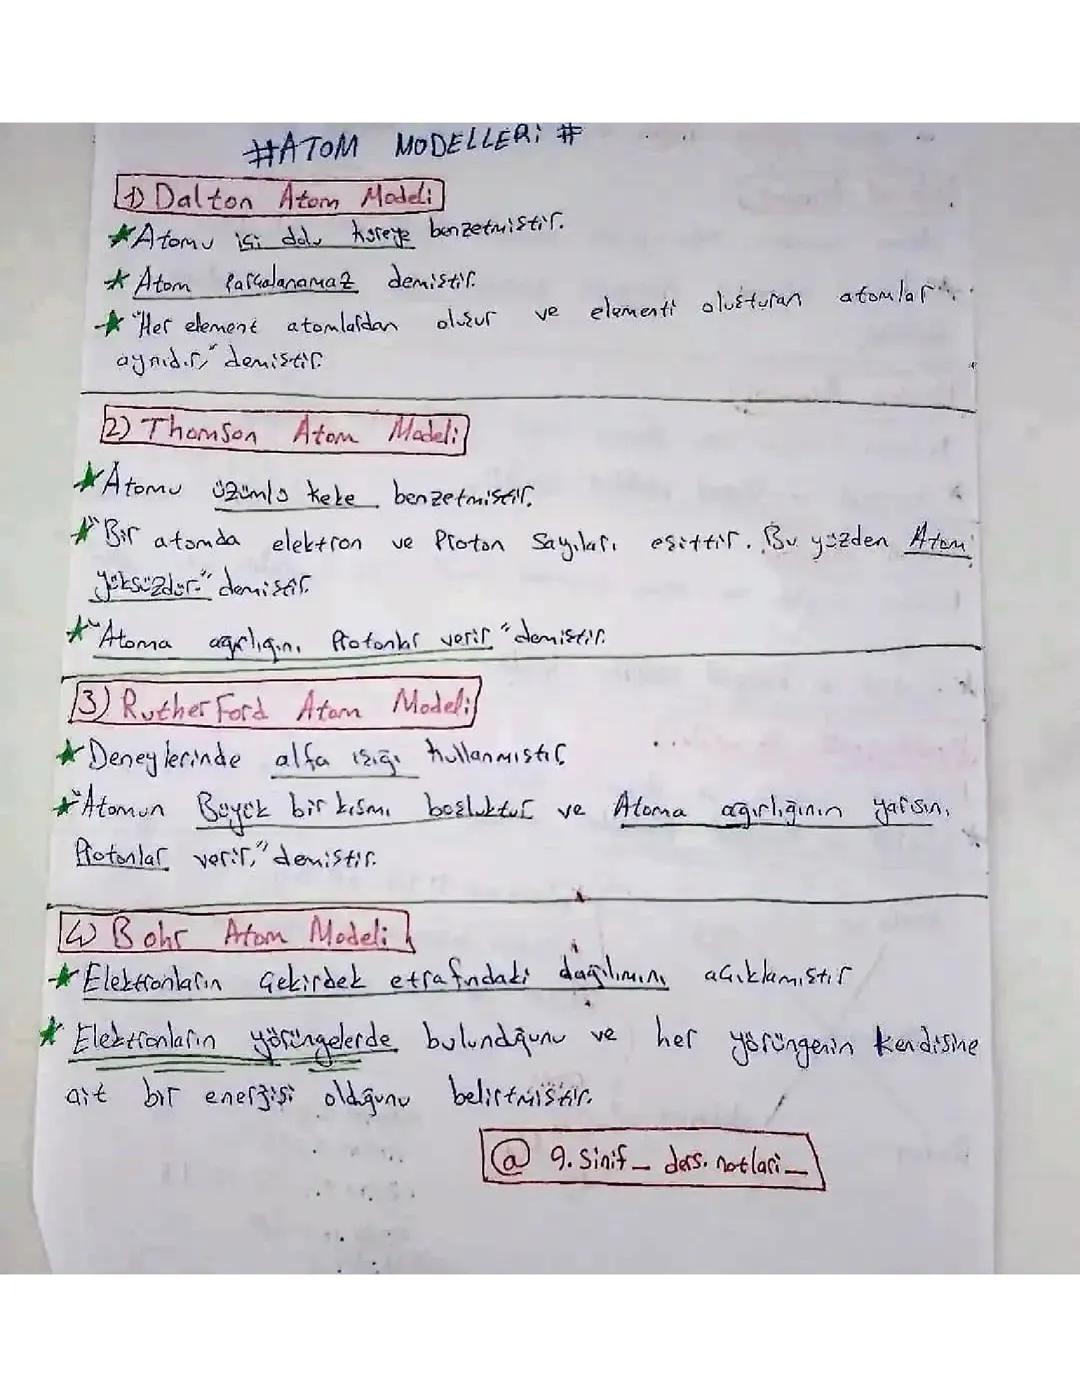 #ATOM MODELLERİ #
1) Dalton Atom Modeli
★Atomu içi dolu küreye benzetmiştir.
★ Atom Parçalanamaz demiştir.
★ "Her element atomlardan oluşur ve elementi oluşturan atomlar
aynıdır," demiştir.
2) Thomson Atom Modeli
★Atomu üzümlü keke benzetmiştir.
★"Bir atomda elektron ve Proton Sayıları eşittir. Bu yüzden Atom
yüksüzdür." demiştir.
★"Atoma ağırlığını Protonlar verir" demiştir.
3) RutherFord Atom Modeli
★Deneylerinde alfa ışığı kullanmıştır.
★"Atomun Büyük bir kısmı boşluktur ve Atoma ağırlığının yarısını
Protonlar verir," demiştir.
4) Bohr Atom Modeli
★Elektronların Çekirdek etrafındaki dağılımını açıklamıştır
★ Elektronların yörüngelerde bulunduğunu ve her yörüngenin kendisine
ait bir enerjisi olduğunu belirtmiştir.
@ 9.sinif_ders.notlari_